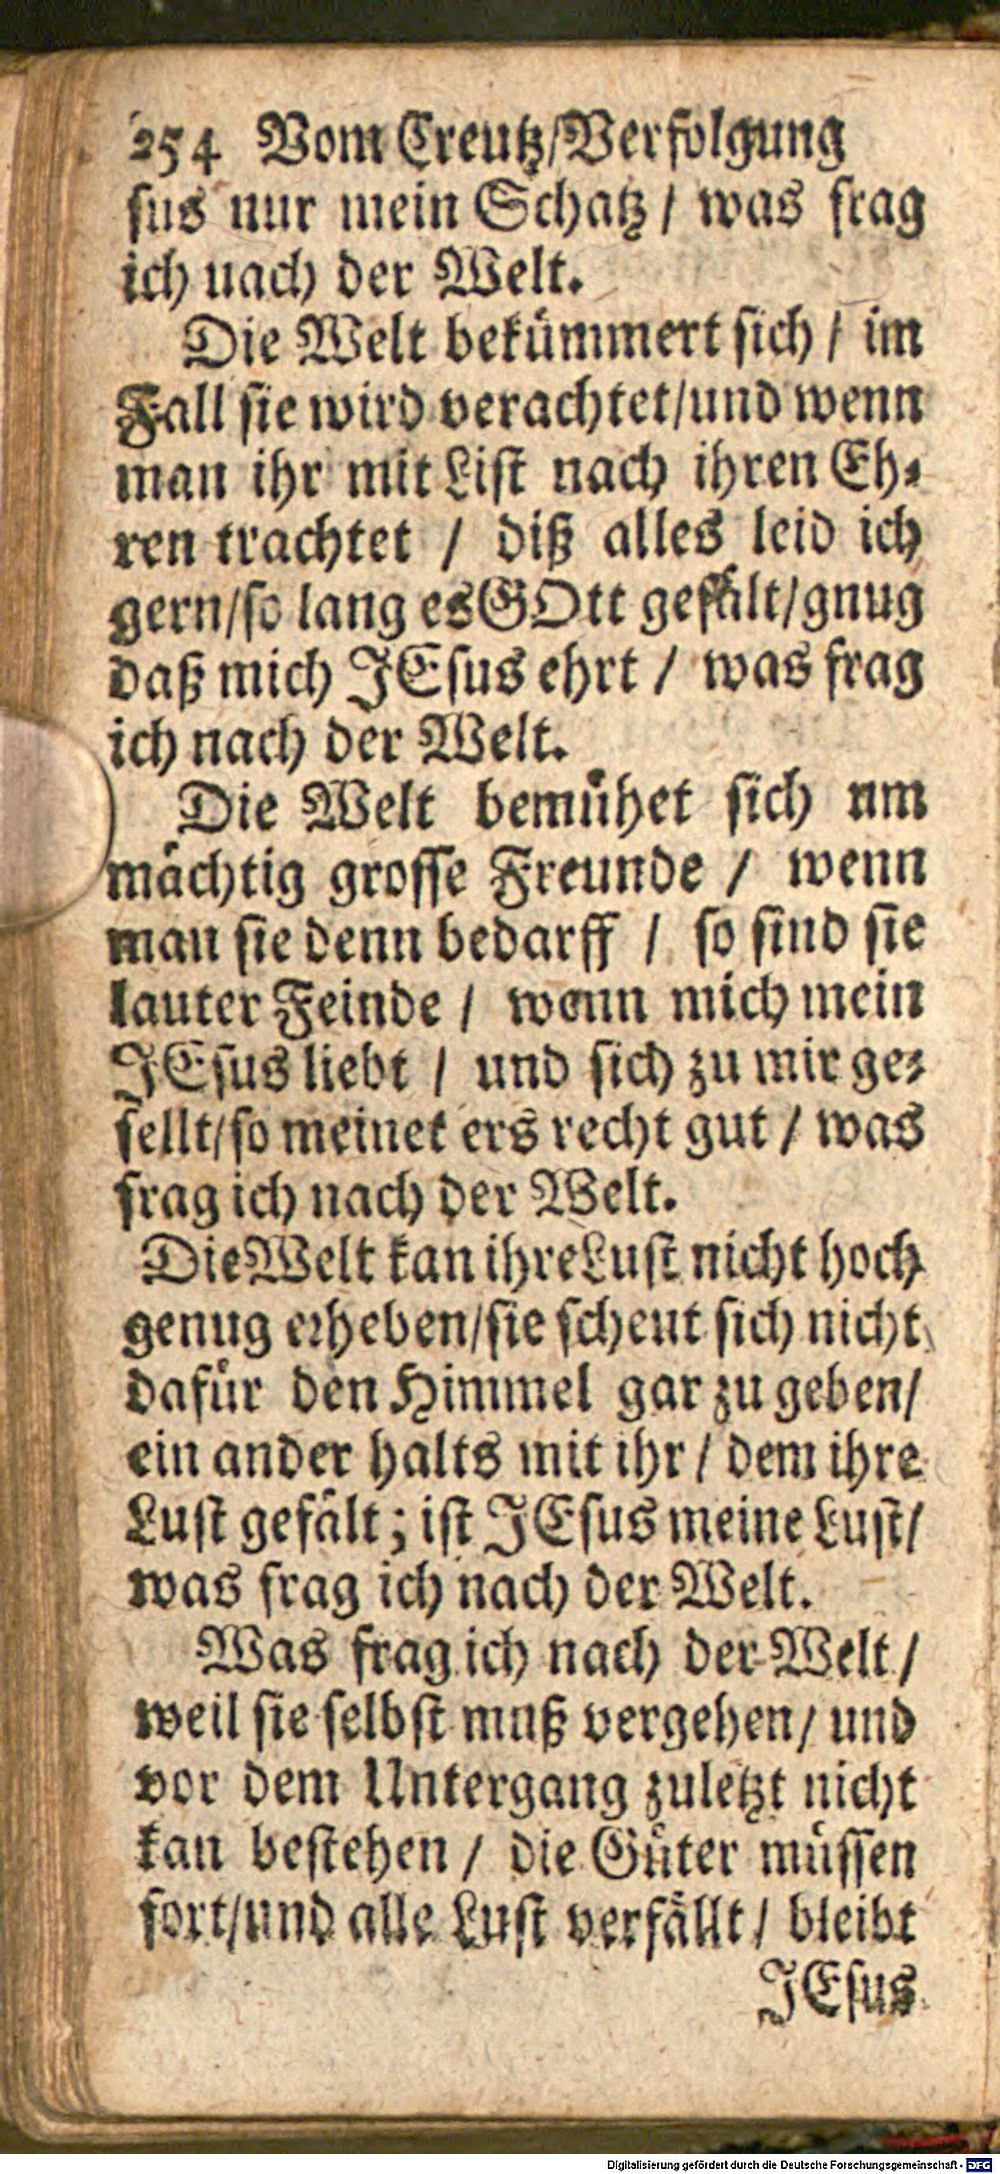 254 Vom Creutz/Verfolgung
sus nur mein Schatz / was frag
ich nach der Welt.
Die Welt bekümmert sich / im
Fall sie wird verachtet/und wenn
man ihr mit List nach ihren Eh-
ren trachtet / diß alles leid ich
gern/so lang es GOtt gefält/gnug
daß mich JEsus ehrt / was frag
ich nach der Welt.
Die Welt bemühet sich um
mächtig grosse Freunde / wenn
man sie denn bedarff / so sind sie
lauter Feinde / wenn mich mein
JEsus liebt / und sich zu mir ge-
sellt/so meinet ers recht gut / was
frag ich nach der Welt.
Die Welt kan ihre Lust nicht hoch
genug erheben/sie scheut sich nicht
dafür den Himmel gar zu geben/
ein ander halts mit ihr / dem ihre
Lust gefält; ist JEsus meine Lust/
was frag ich nach der Welt.
Was frag ich nach der Welt /
weil sie selbst muß vergehen/ und
vor dem Untergang zuletzt nicht
kan bestehen / die Güter müssen
fort/und alle Lust verfällt / bleibt
JEsus
Digitalisierung gefördert durch die Deutsche Forschungsgemeinschaft - DFG